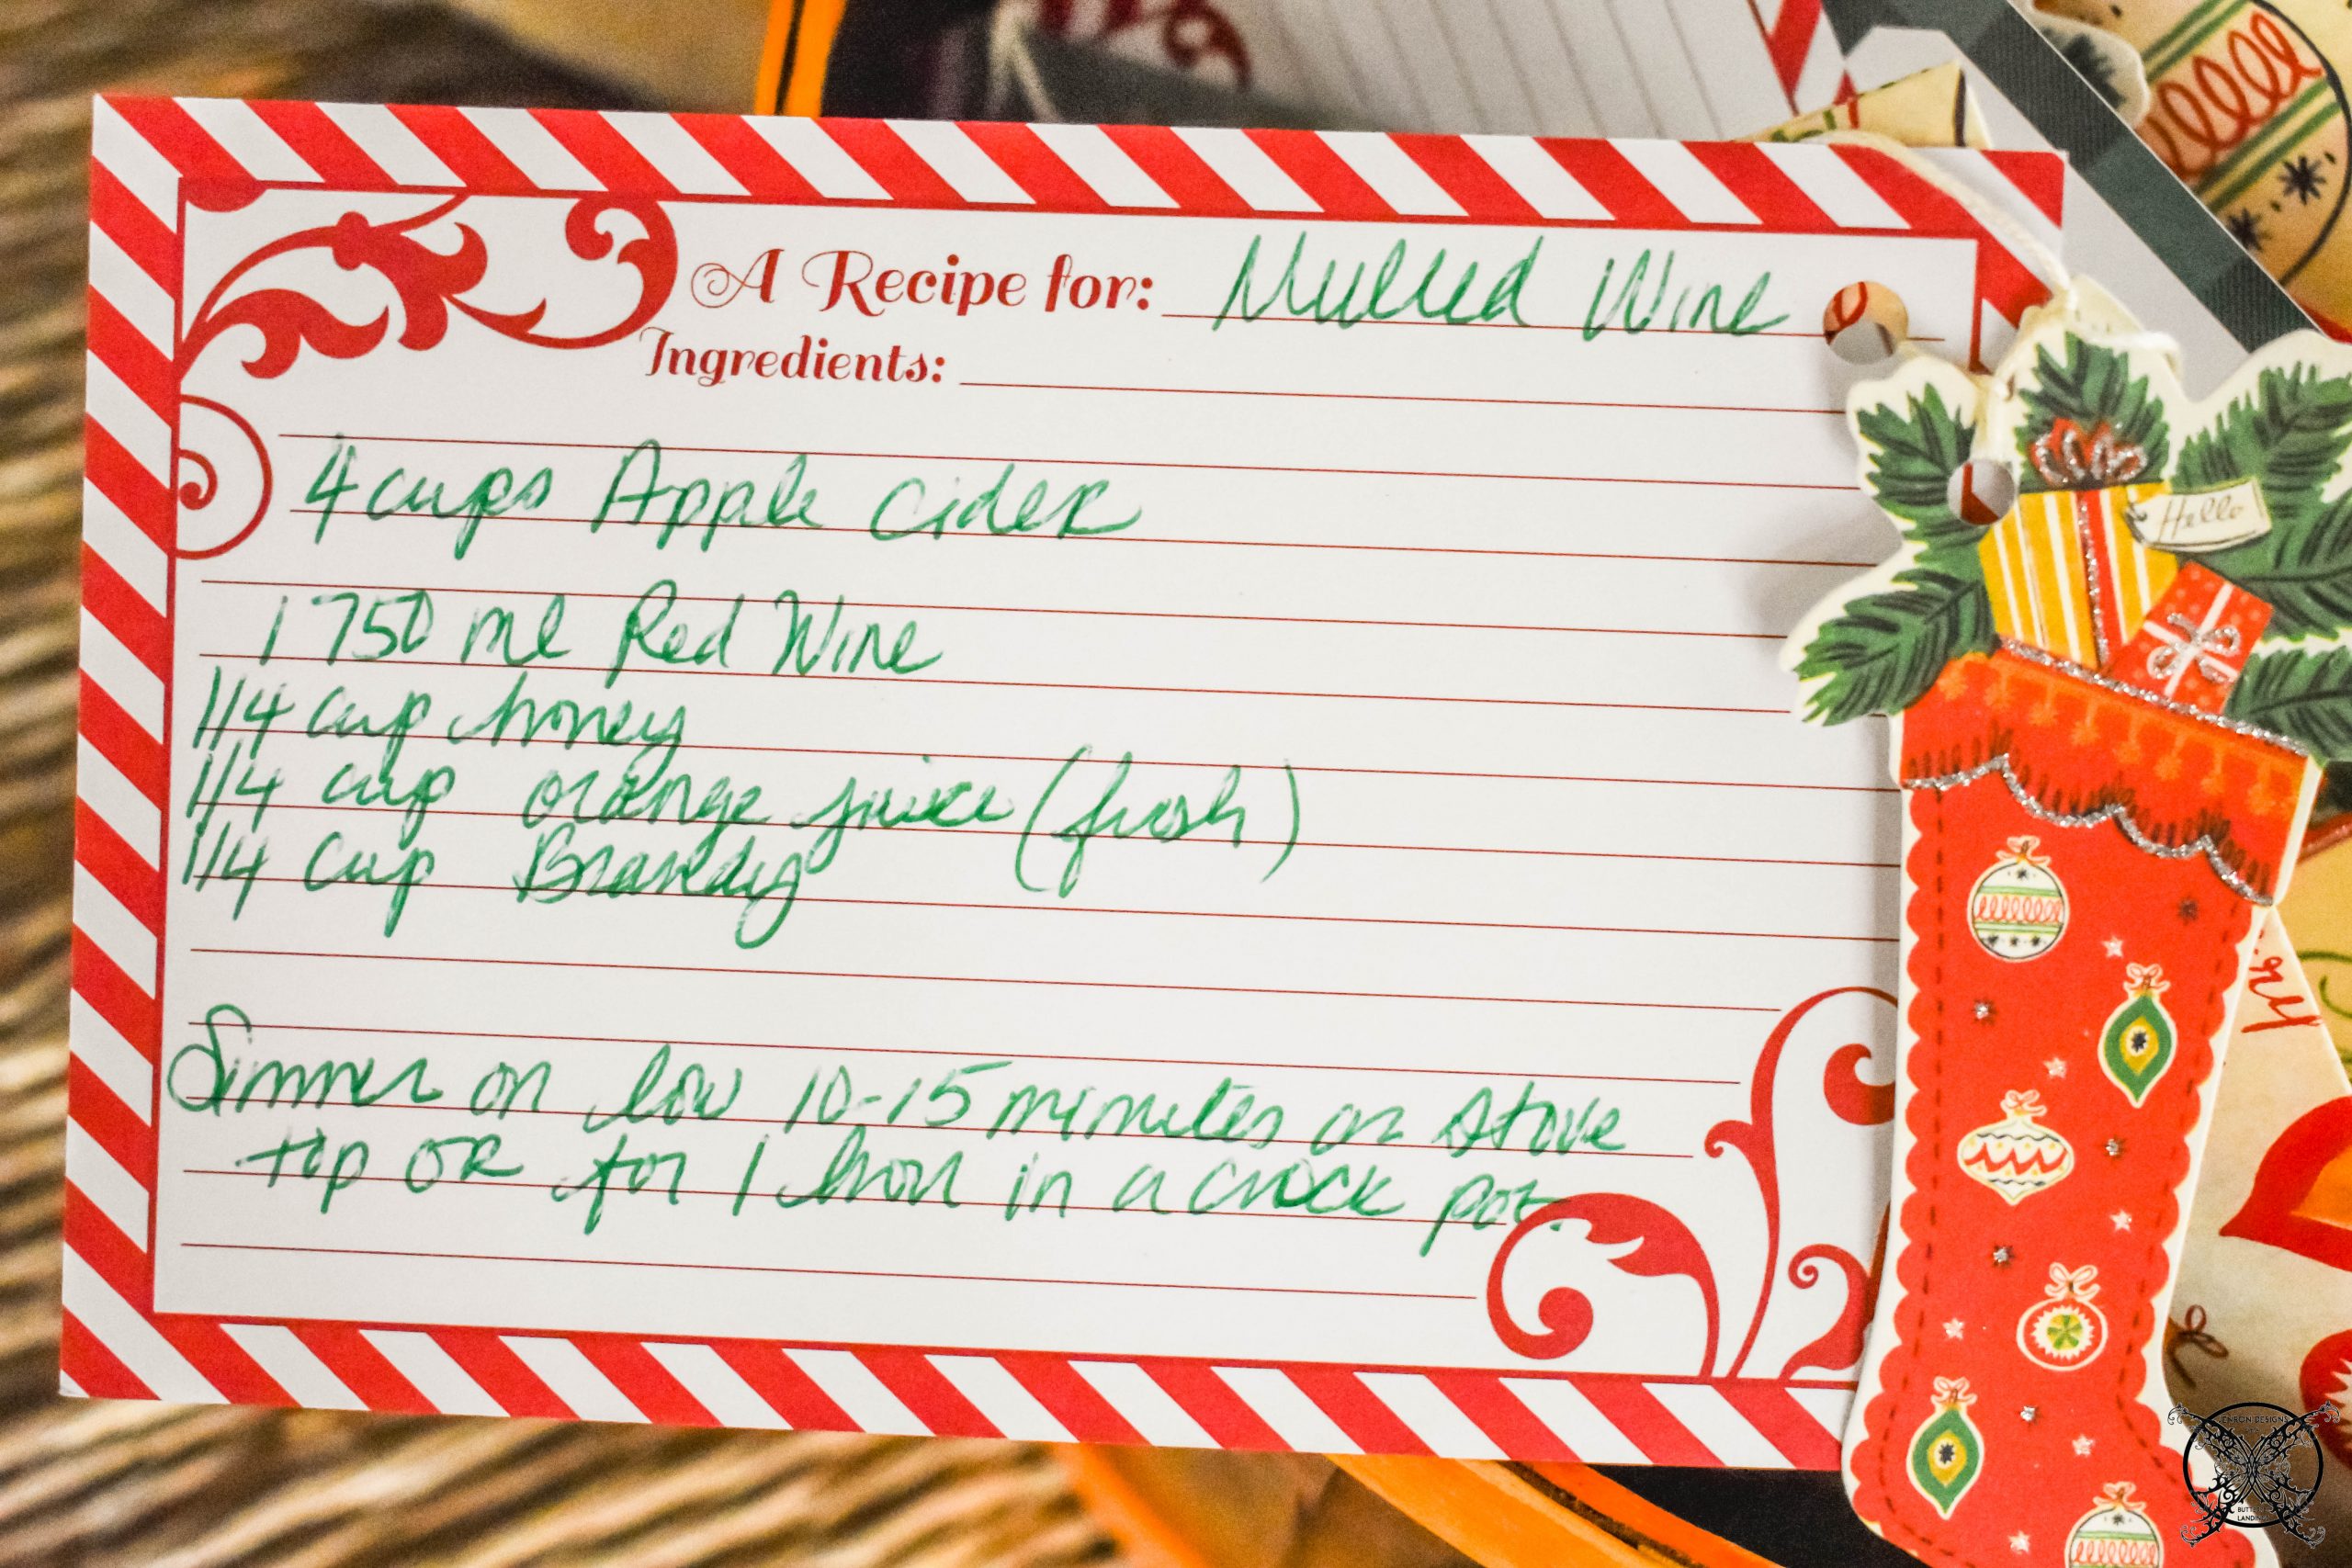 A Recipe for: Mulled Wine
Ingredients:
4 cups Apple Cider
1 750 ml Red Wine
1/4 cup honey
1/4 cup orange juice (fresh)
1/4 cup Brandy
Simmer on low 10-15 minutes on stove
top OR for 1 hour in a crock pot.
Hello